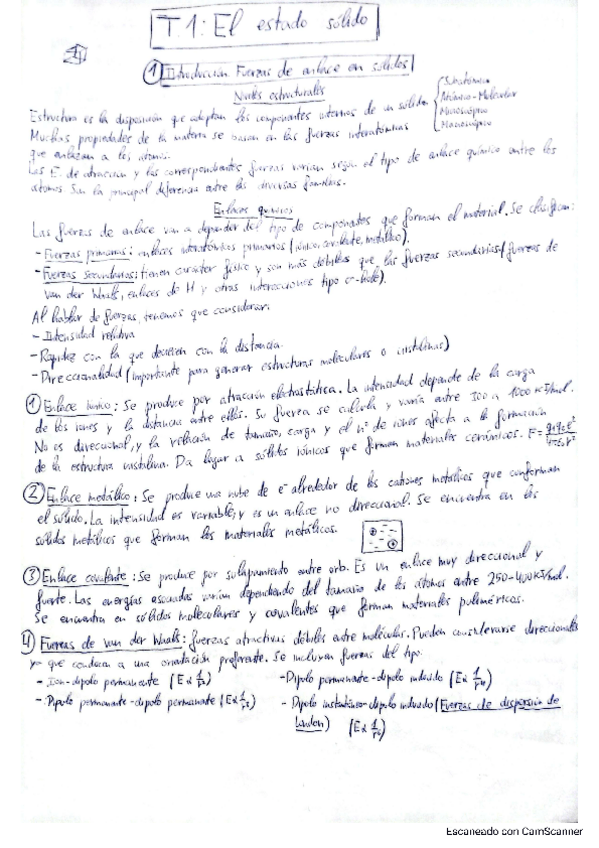 T1: El estado sólido
1 Introducción Fuerzas de enlace en sólidos
Niveles estructurales
Estructura es la disposición que adoptan los componentes internos de un sólido
Subatómico
Atómico-Molecular
Microscópico
Macroscópico
Muchas propiedades de la materia se basan en las fuerzas interatómicas
que enlazan a los átomos.
Las E. de atracción y las correspondientes fuerzas varían según el tipo de enlace químico entre los
átomos. Son la principal diferencia entre las diversas familias.
Enlaces químicos
Las fuerzas de enlace van a depender del tipo de componentes que forman el material. Se clasifican:
- Fuerzas primarias: enlaces interatómicos primarios (iónico, covalente, metálico).
- Fuerzas secundarias: tienen carácter físico y son más débiles que las fuerzas secundarias (fuerzas de
van der Waals, enlaces de H y otras interacciones tipo
Al hablar de fuerzas, tenemos que considerar:
- Intensidad relativa
- Rapidez con la que decrecen con la distancia.
- Direccionalidad (importante para generar estructuras moleculares o cristalinas)
1 Enlace iónico: Se produce por atracción electrostática. La intensidad depende de la carga
de los iones y la distancia entre ellos. Su fuerza se calcula y varía entre 1000 KJ/mol.
No es direccional, y la relación de tamaño, carga y el nº de iones afecta a la formación
de la estructura cristalina. Da lugar a sólidos iónicos que forman materiales cerámicos. F=
2 Enlace metálico: Se produce una nube de e- alrededor de los cationes metálicos que conforman
el sólido. La intensidad es variable, y es un enlace no direccional. Se encuentra en los
sólidos metálicos que forman los materiales metálicos.
3 Enlace covalente: Se produce por solapamiento entre orb. Es un enlace muy direccional y
fuerte. Las energías asociadas varían dependiendo del tamaño de los átomos entre 250-400 KJ/mol.
Se encuentra en sólidos moleculares y covalentes que forman materiales poliméricos.
4 Fuerzas de van der Waals: fuerzas atractivas débiles entre moléculas. Pueden considerarse direccionales
ya que conducen a una orientación preferente. Se incluyen fuerzas del tipo:
- Ion-dipolo permanente (E α
- Dipolo permanente-dipolo inducido (E α
- Dipolo permanente-dipolo permanente (E α
- Dipolo instantáneo-dipolo inducido (Fuerzas de dispersión de
London) (E α
Escaneado con CamScanner